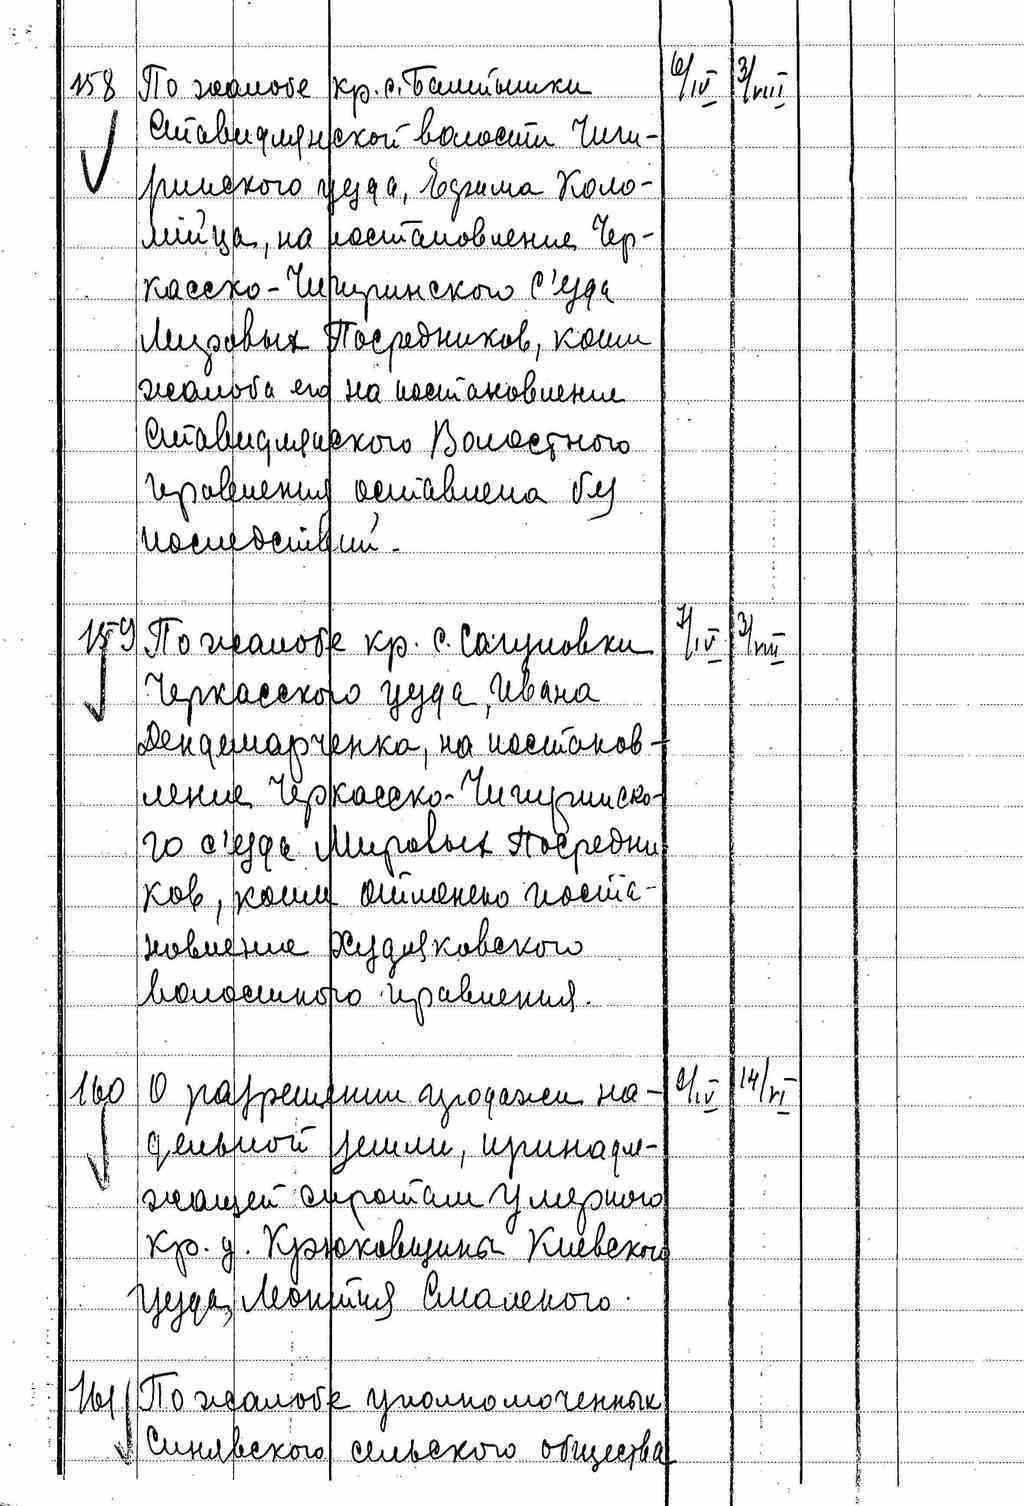 158 По жалобе кр. с. Балтышки 6/IV 3/VIII
Ставидлянской волости Чиги-
ринского уезда, Ефима Коло-
мийца, на постановление Чер-
касско-Чигиринского с'езда
Мировых Посредников, коим
жалоба его на постановление
Ставидлянского Волостного
правления оставлена без
последствий.
159 По жалобе кр. с. Сагуновки 7/IV 3/VIII
Черкасского уезда, Ивана
Дендемарченка, на постанов-
ление Черкасско-Чигиринско-
го с'езда Мировых Посредни
ков, коим отменено поста-
новление Худяковского
волостного правления.
160 О разрешении продажи на- 9/IV 14/VI
дельной земли, принадле-
жащей сиротам умерного
кр. д. Крюковщины Киевского
уезда, Моктия Смаленого.
161 По жалобе уполномоченных
Синявского сельского общества